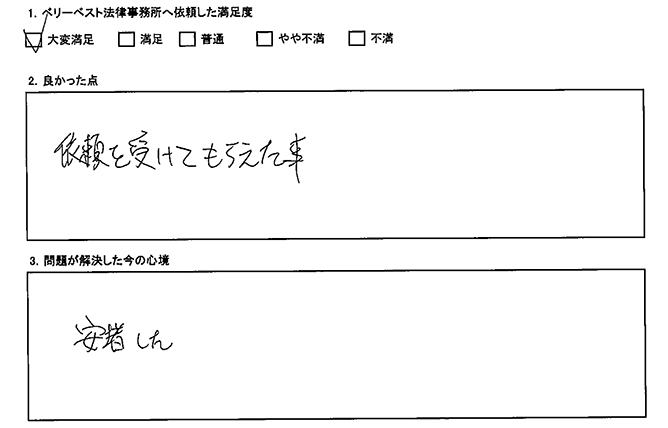 1. ベリーベスト法律事務所へ依頼した満足度
☑ 大変満足 □ 満足 □ 普通 □ やや不満 □ 不満
2. 良かった点
依頼を受けてもらえた事
3. 問題が解決した今の心境
安堵した